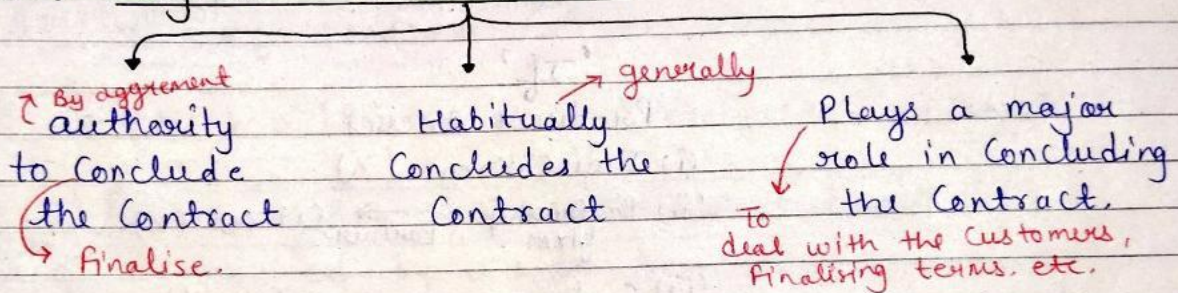 By aggrement
authority
to Conclude
the Contract
finalise.
generally
Habitually
Concludes the
Contract
Plays a major
role in Concluding
the Contract.
To
deal with the Customers,
finalising terms. etc.